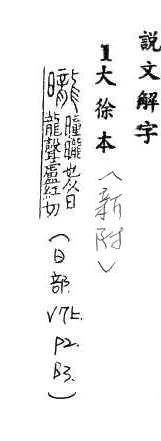 説文解字
1大徐本〈新附〉
曨 曈曨也从日
龍聲盧紅切
(日部.V7上.P2.B3.)